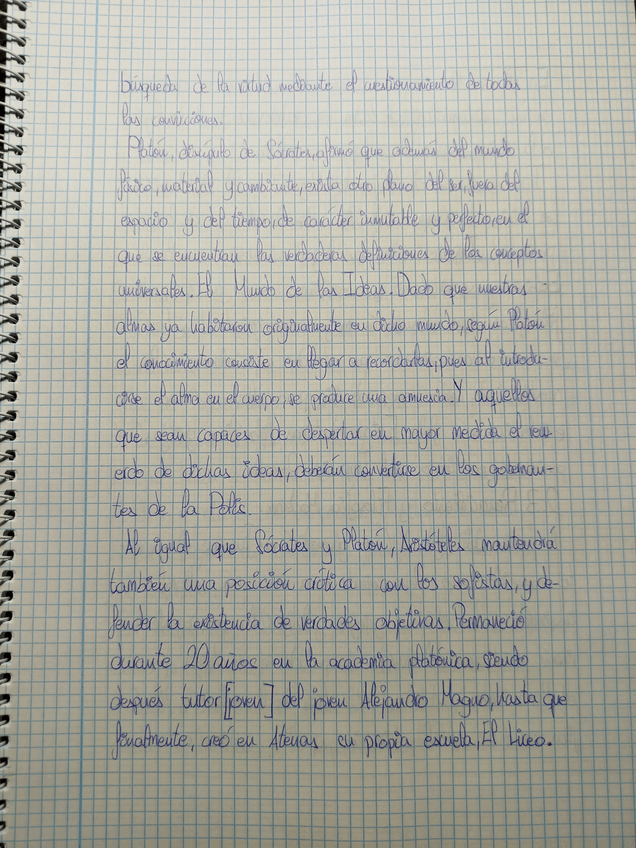 búsqueda de la virtud mediante el cuestionamiento de todas
las convicciones.
Platón, discípulo de Sócrates, afirmó que además del mundo
físico, material y cambiante, existía otro plano del ser, fuera del
espacio y del tiempo, de carácter inmutable y perfecto, en el
que se encuentran las verdaderas definiciones de los conceptos
universales. El Mundo de las Ideas. Dado que nuestras
almas ya habitaron originalmente en dicho mundo, según Platón
el conocimiento consiste en llegar a recordarlas, pues al introdu-
cirse el alma en el cuerpo, se produce una amnesia. Y aquellos
que sean capaces de despertar en mayor medida el recu-
erdo de dichas ideas, deberán convertirse en los gobernan-
tes de la Polis.
Al igual que Sócrates y Platón, Aristóteles mantendrá
también una posición crítica con los sofistas, y de-
fender la existencia de verdades objetivas. Permaneció
durante 20 años en la academia platónica, siendo
después tutor [joven] del joven Alejandro Magno, hasta que
finalmente, creó en Atenas su propia escuela, El Liceo.